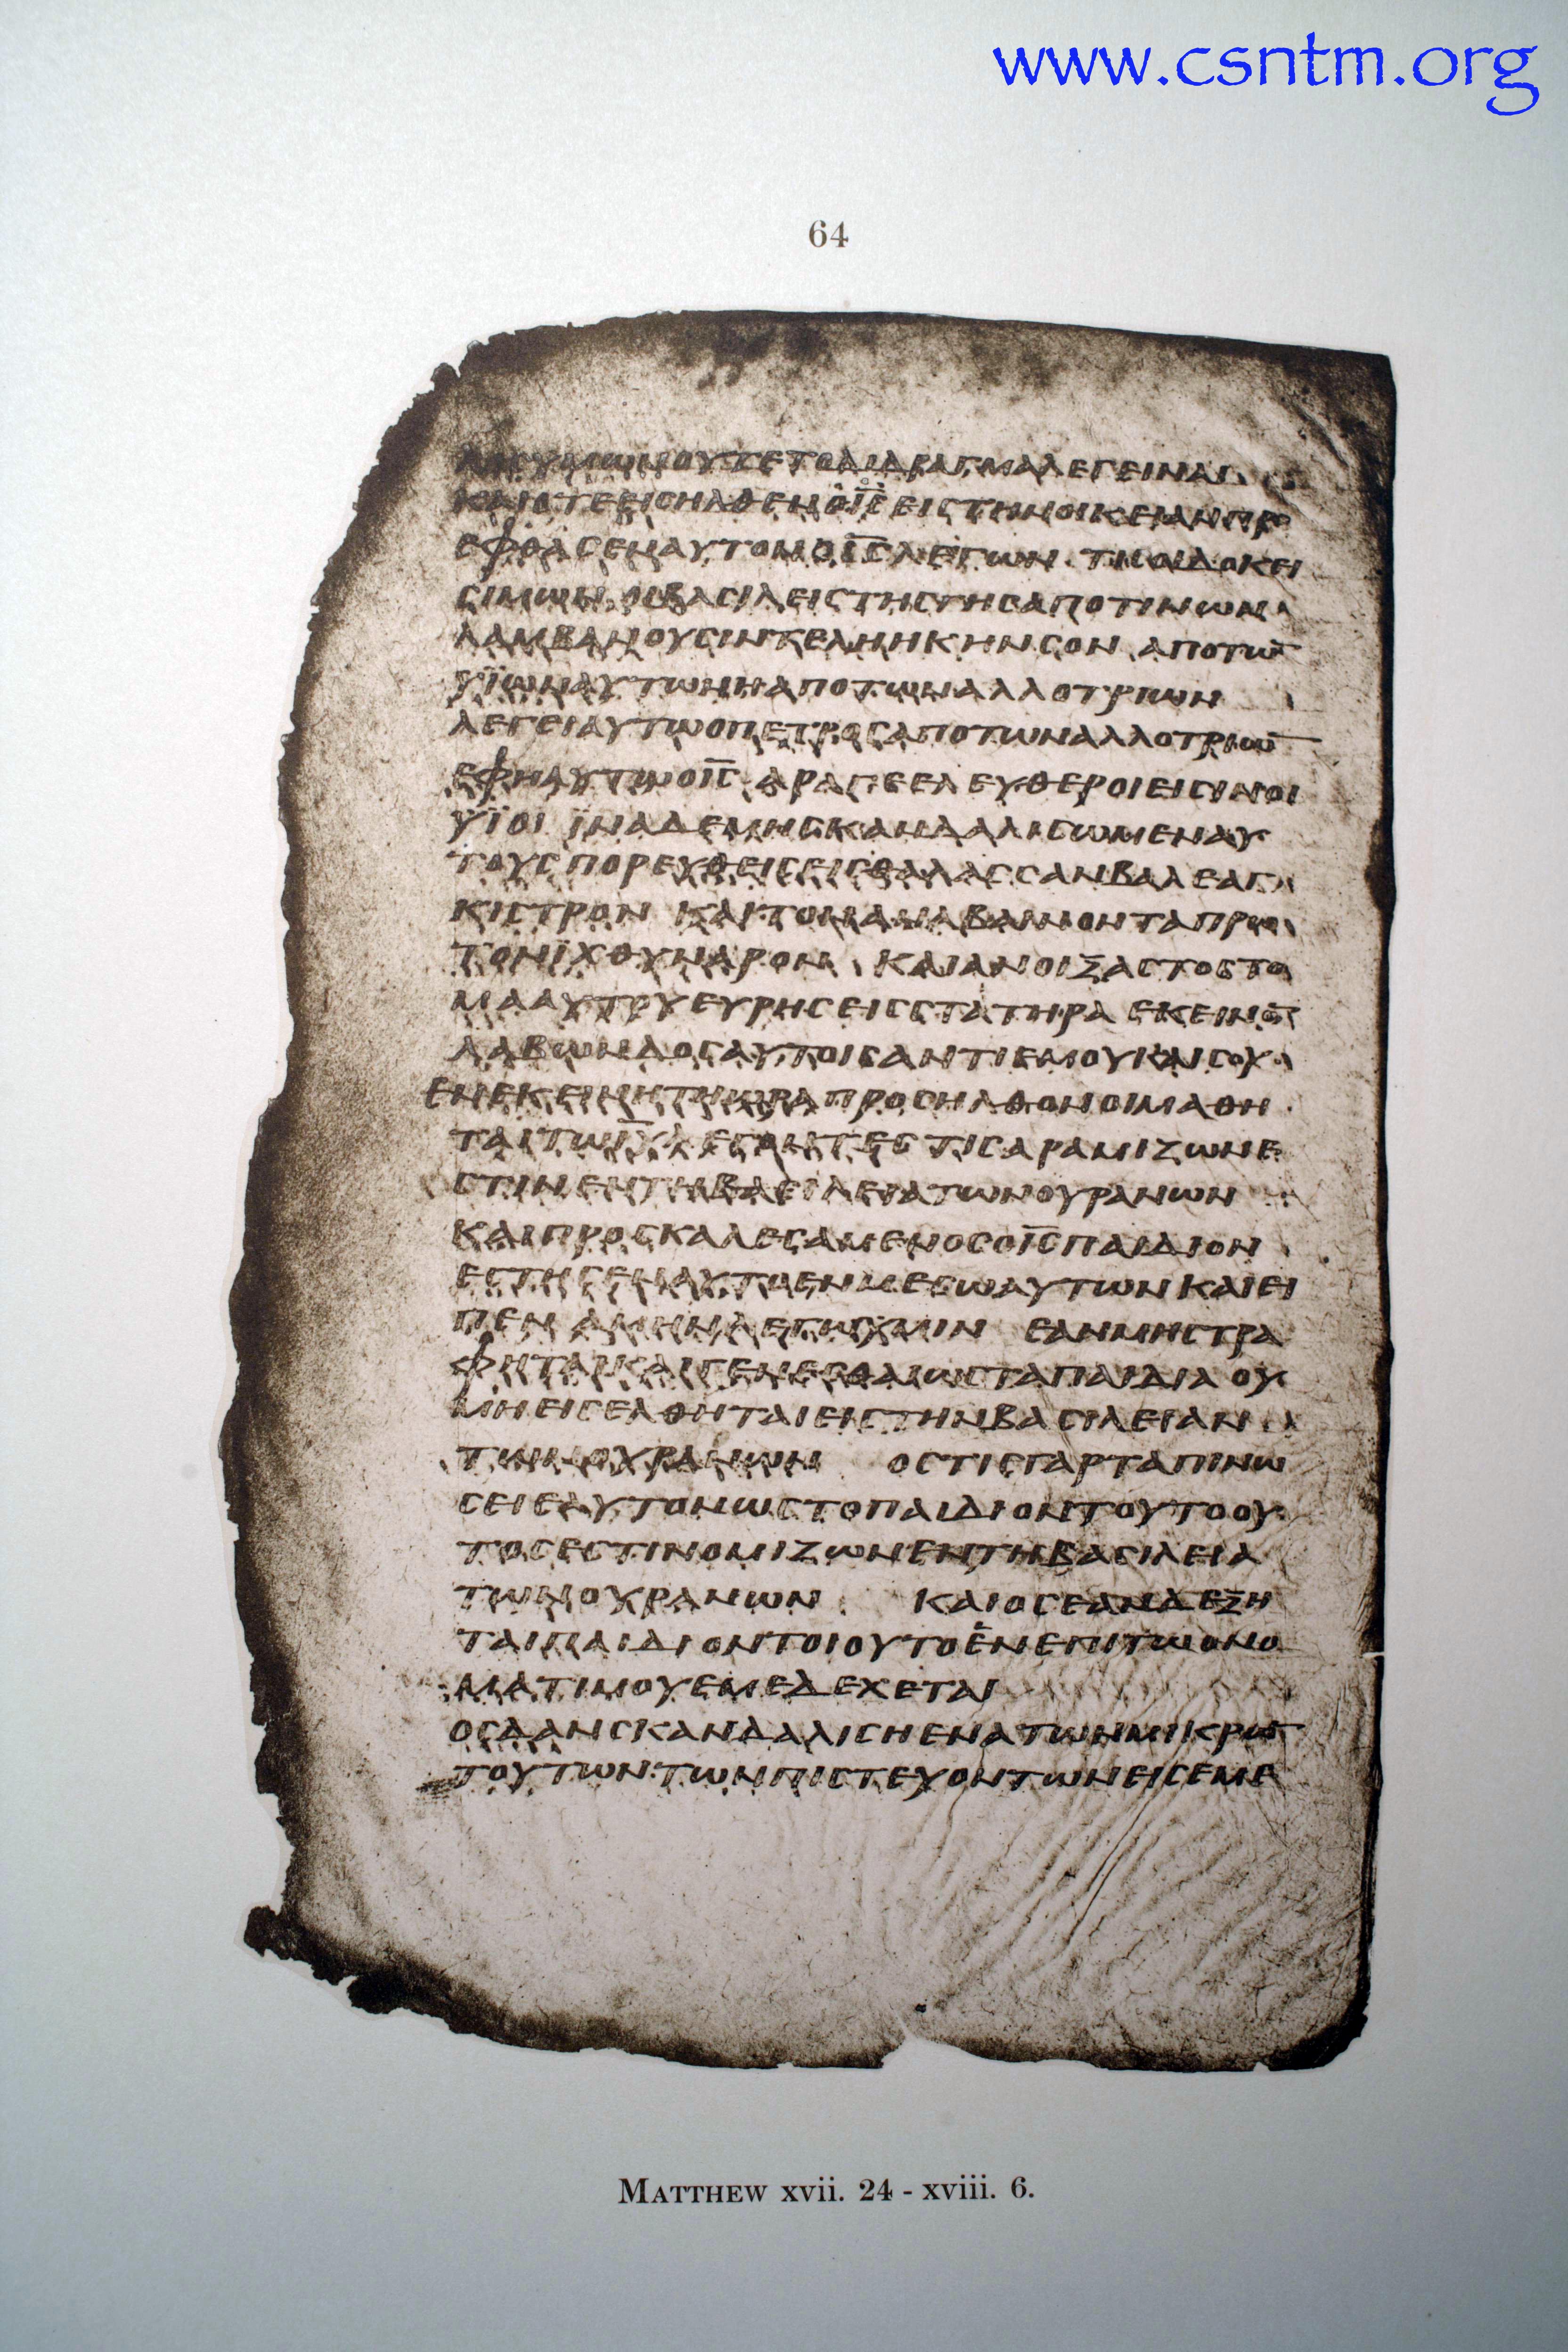 www.csntm.org
64
ΛΟϹΥΜΩΝΟΥΤΕΤΟΔΙΔΡΑΓΜΑΛΕΓΕΙΝΑΙ
ΚΑΙΟΤΕΕΙϹΗΛΘΕΝΟΙ̅Ϲ̅ΕΙϹΤΗΝΟΙΚΕΙΑΝΠΡ
ΕΦΘΑϹΕΝΑΥΤΟΝΟΙ̅Ϲ̅ΛΕΓΩΝ ΤΙϹΟΙΔΟΚΕΙ
ϹΙΜΩΝΟΙΒΑϹΙΛΕΙϹΤΗϹΓΗϹΑΠΟΤΙΝΩΝ
ΛΑΜΒΑΝΟΥϹΙΝΤΕΛΗΗΚΗΝϹΟΝ ΑΠΟΤΩ̅
ΥΪΩΝΑΥΤΩΝΗΑΠΟΤΩΝΑΛΛΟΤΡΙΩΝ
ΛΕΓΕΙΑΥΤΩΟΠΕΤΡΟϹΑΠΟΤΩΝΑΛΛΟΤΡΙΩ̅
ΕΦΗΑΥΤΩΟΙ̅Ϲ̅ ΑΡΑΓΕΕΛΕΥΘΕΡΟΙΕΙϹΙΝΟΙ
ΥΪΟΙ ΪΝΑΔΕΜΗϹΚΑΝΔΑΛΙϹΩΜΕΝΑΥ
ΤΟΥϹΠΟΡΕΥΘΕΙϹΕΙϹΘΑΛΑϹϹΑΝΒΑΛΕΑΓ
ΚΙϹΤΡΟΝ ΚΑΙΤΟΝΑΝΑΒΑΙΝΟΝΤΑΠΡΩ
ΤΟΝΪΧΘΥΝΑΡΟΝ ΚΑΙΑΝΟΙΞΑϹΤΟϹΤΟ
ΜΑΑΥΤΟΥΕΥΡΗϹΕΙϹϹΤΑΤΗΡΑ ΕΚΕΙΝΟ̅
ΛΑΒΩΝΔΟϹΑΥΤΟΙϹΑΝΤΙΕΜΟΥΚΑΙϹΟΥ
ΕΝΕΚΕΙΝΗΤΗΩΡΑΠΡΟϹΗΛΘΟΝΟΙΜΑΘΗ
ΤΑΙΤΩΙ̅Υ̅ΛΕΓΟΝΤΕϹ ΤΙϹΑΡΑΜΙΖΩΝΕ
ϹΤΙΝΕΝΤΗΒΑϹΙΛΕΙΑΤΩΝΟΥΡΑΝΩΝ
ΚΑΙΠΡΟϹΚΑΛΕϹΑΜΕΝΟϹΟΙ̅Ϲ̅ΠΑΙΔΙΟΝ
ΕϹΤΗϹΕΝΑΥΤΟΕΝΜΕϹΩΑΥΤΩΝΚΑΙΕΙ
ΠΕΝ ΑΜΗΝΛΕΓΩΥΜΙΝ ΕΑΝΜΗϹΤΡΑ
ΦΗΤΑΙΚΑΙΓΕΝΕϹΘΑΙΩϹΤΑΠΑΙΔΙΑ ΟΥ
ΜΗΕΙϹΕΛΘΗΤΑΙΕΙϹΤΗΝΒΑϹΙΛΕΙΑΝ
ΤΩΝΟΥΡΑΝΩΝ ΟϹΤΙϹΓΑΡΤΑΠΙΝΩ
ϹΕΙΕΑΥΤΟΝΩϹΤΟΠΑΙΔΙΟΝΤΟΥΤΟΟΥ
ΤΟϹΕϹΤΙΝΟΜΙΖΩΝΕΝΤΗΒΑϹΙΛΕΙΑ
ΤΩΝΟΥΡΑΝΩΝ ΚΑΙΟϹΕΑΝΔΕΞΗ
ΤΑΙΠΑΙΔΙΟΝΤΟΙΟΥΤΟΕΝΕΠΙΤΩΟΝΟ
ΜΑΤΙΜΟΥΕΜΕΔΕΧΕΤΑΙ
ΟϹΔΑΝϹΚΑΝΔΑΛΙϹΗΕΝΑΤΩΝΜΙΚΡΩ̅
ΤΟΥΤΩΝΤΩΝΠΙϹΤΕΥΟΝΤΩΝΕΙϹΕΜΕ
MATTHEW xvii. 24 - xviii. 6.